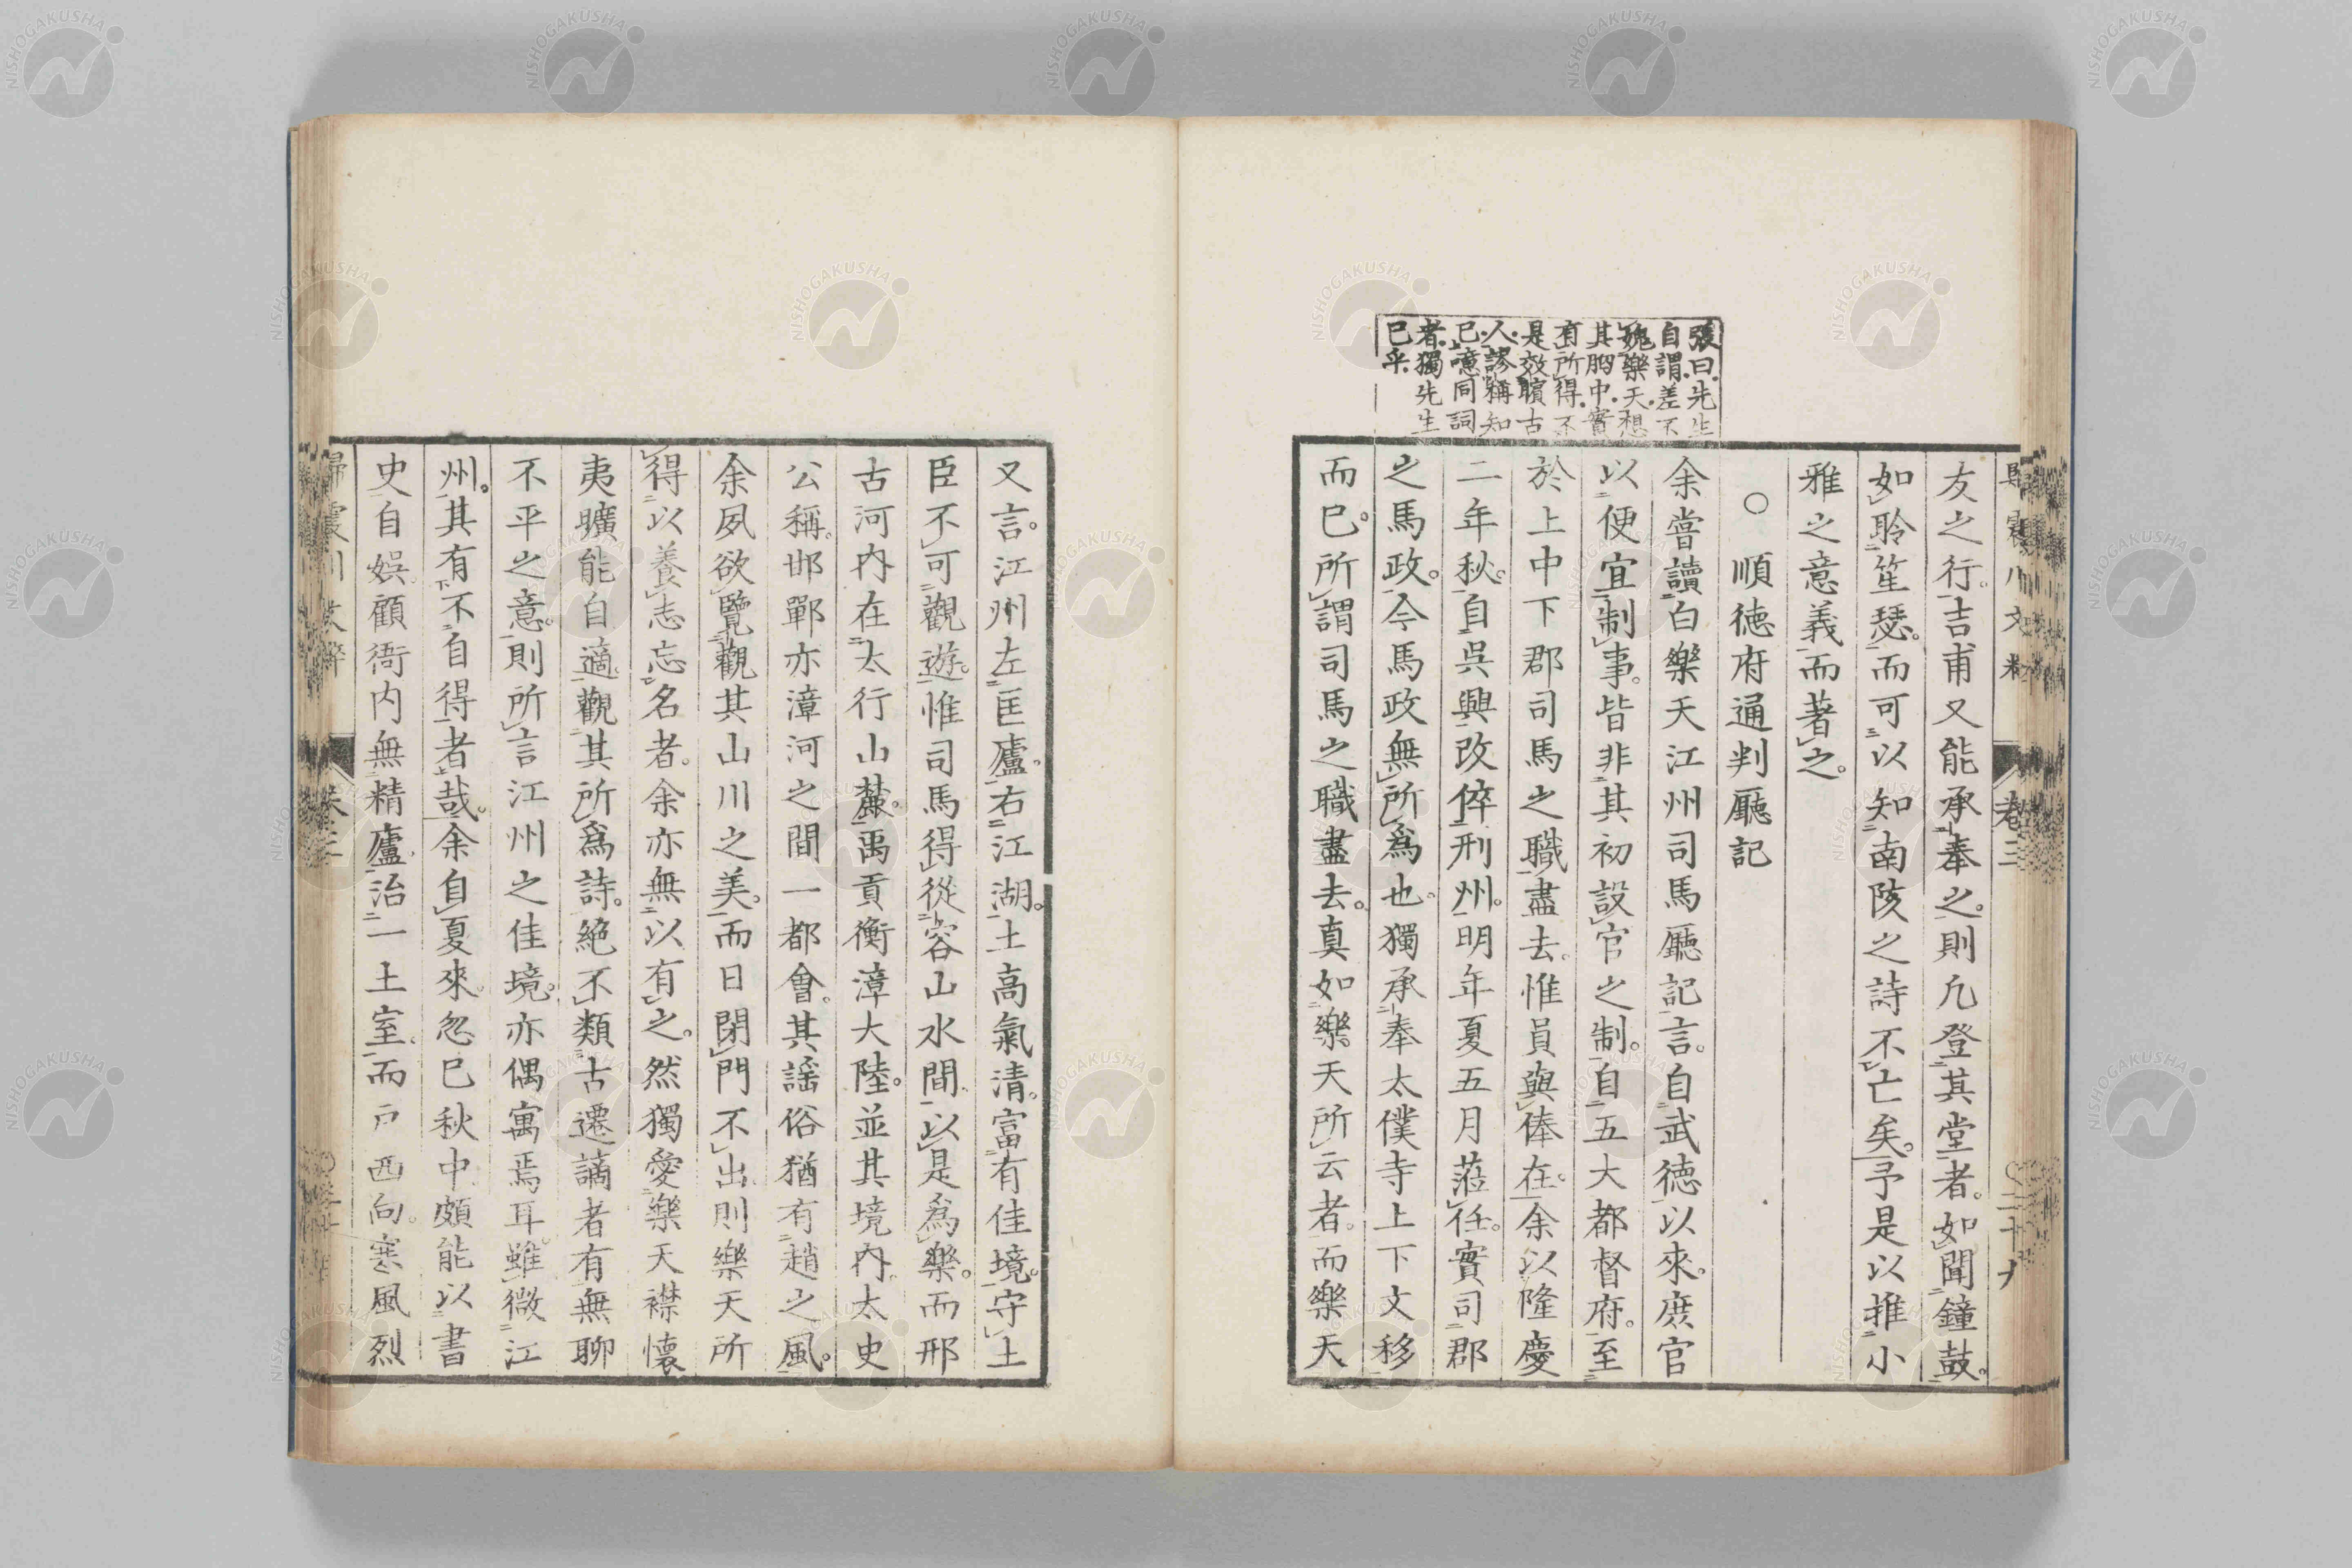 友之行。吉甫又能承奉之。則凡登其堂者。如聞鐘鼓。
如聆笙瑟。而可以知南陔之詩不亡矣。予是以推小
雅之意義而著之。
○順德府通判廳記
張曰。先生
自謂差不
媿樂天。想
其胸中。實
有所得。不
是效臏古
人。謬稱知
己。噫同詞
者。獨先生
已乎。
余嘗讀白樂天江州司馬廳記。言。自武德以來。庶官
以便宜制事。皆非其初設官之制。自五大都督府。至
於上中下郡司馬之職盡去。惟員與俸在。余以隆慶
二年秋。自吳興改倅刑州。明年夏五月蒞任。實司郡
之馬政。今馬政無所爲也。獨承奉太僕寺上下文移
而已。所謂司馬之職盡去。真如樂天所云者。而樂天
又言。江州左匡廬。右江湖。土高氣清。富有佳境。守土
臣不可觀遊。惟司馬得從容山水間。以是爲樂。而邢
古河內在太行山麓。禹貢衡漳大陸。並其境內。太史
公稱。邯鄲亦漳河之間一都會。其謠俗猶有趙之風。
余夙欲覽觀其山川之美。而日閉門不出。則樂天所
得以養志忘名者。余亦無以有之。然獨愛樂天襟懷
夷曠能自適。觀其所爲詩。絕不類古遷謫者有無聊
不平之意。則所言江州之佳境。亦偶寓焉耳。雖微江
州。其有不自得者哉。余自夏來。忽已秋中。頗能以書
史自娛。顧衙內無精廬。治一土室。而戶西向。寒風烈
卷三